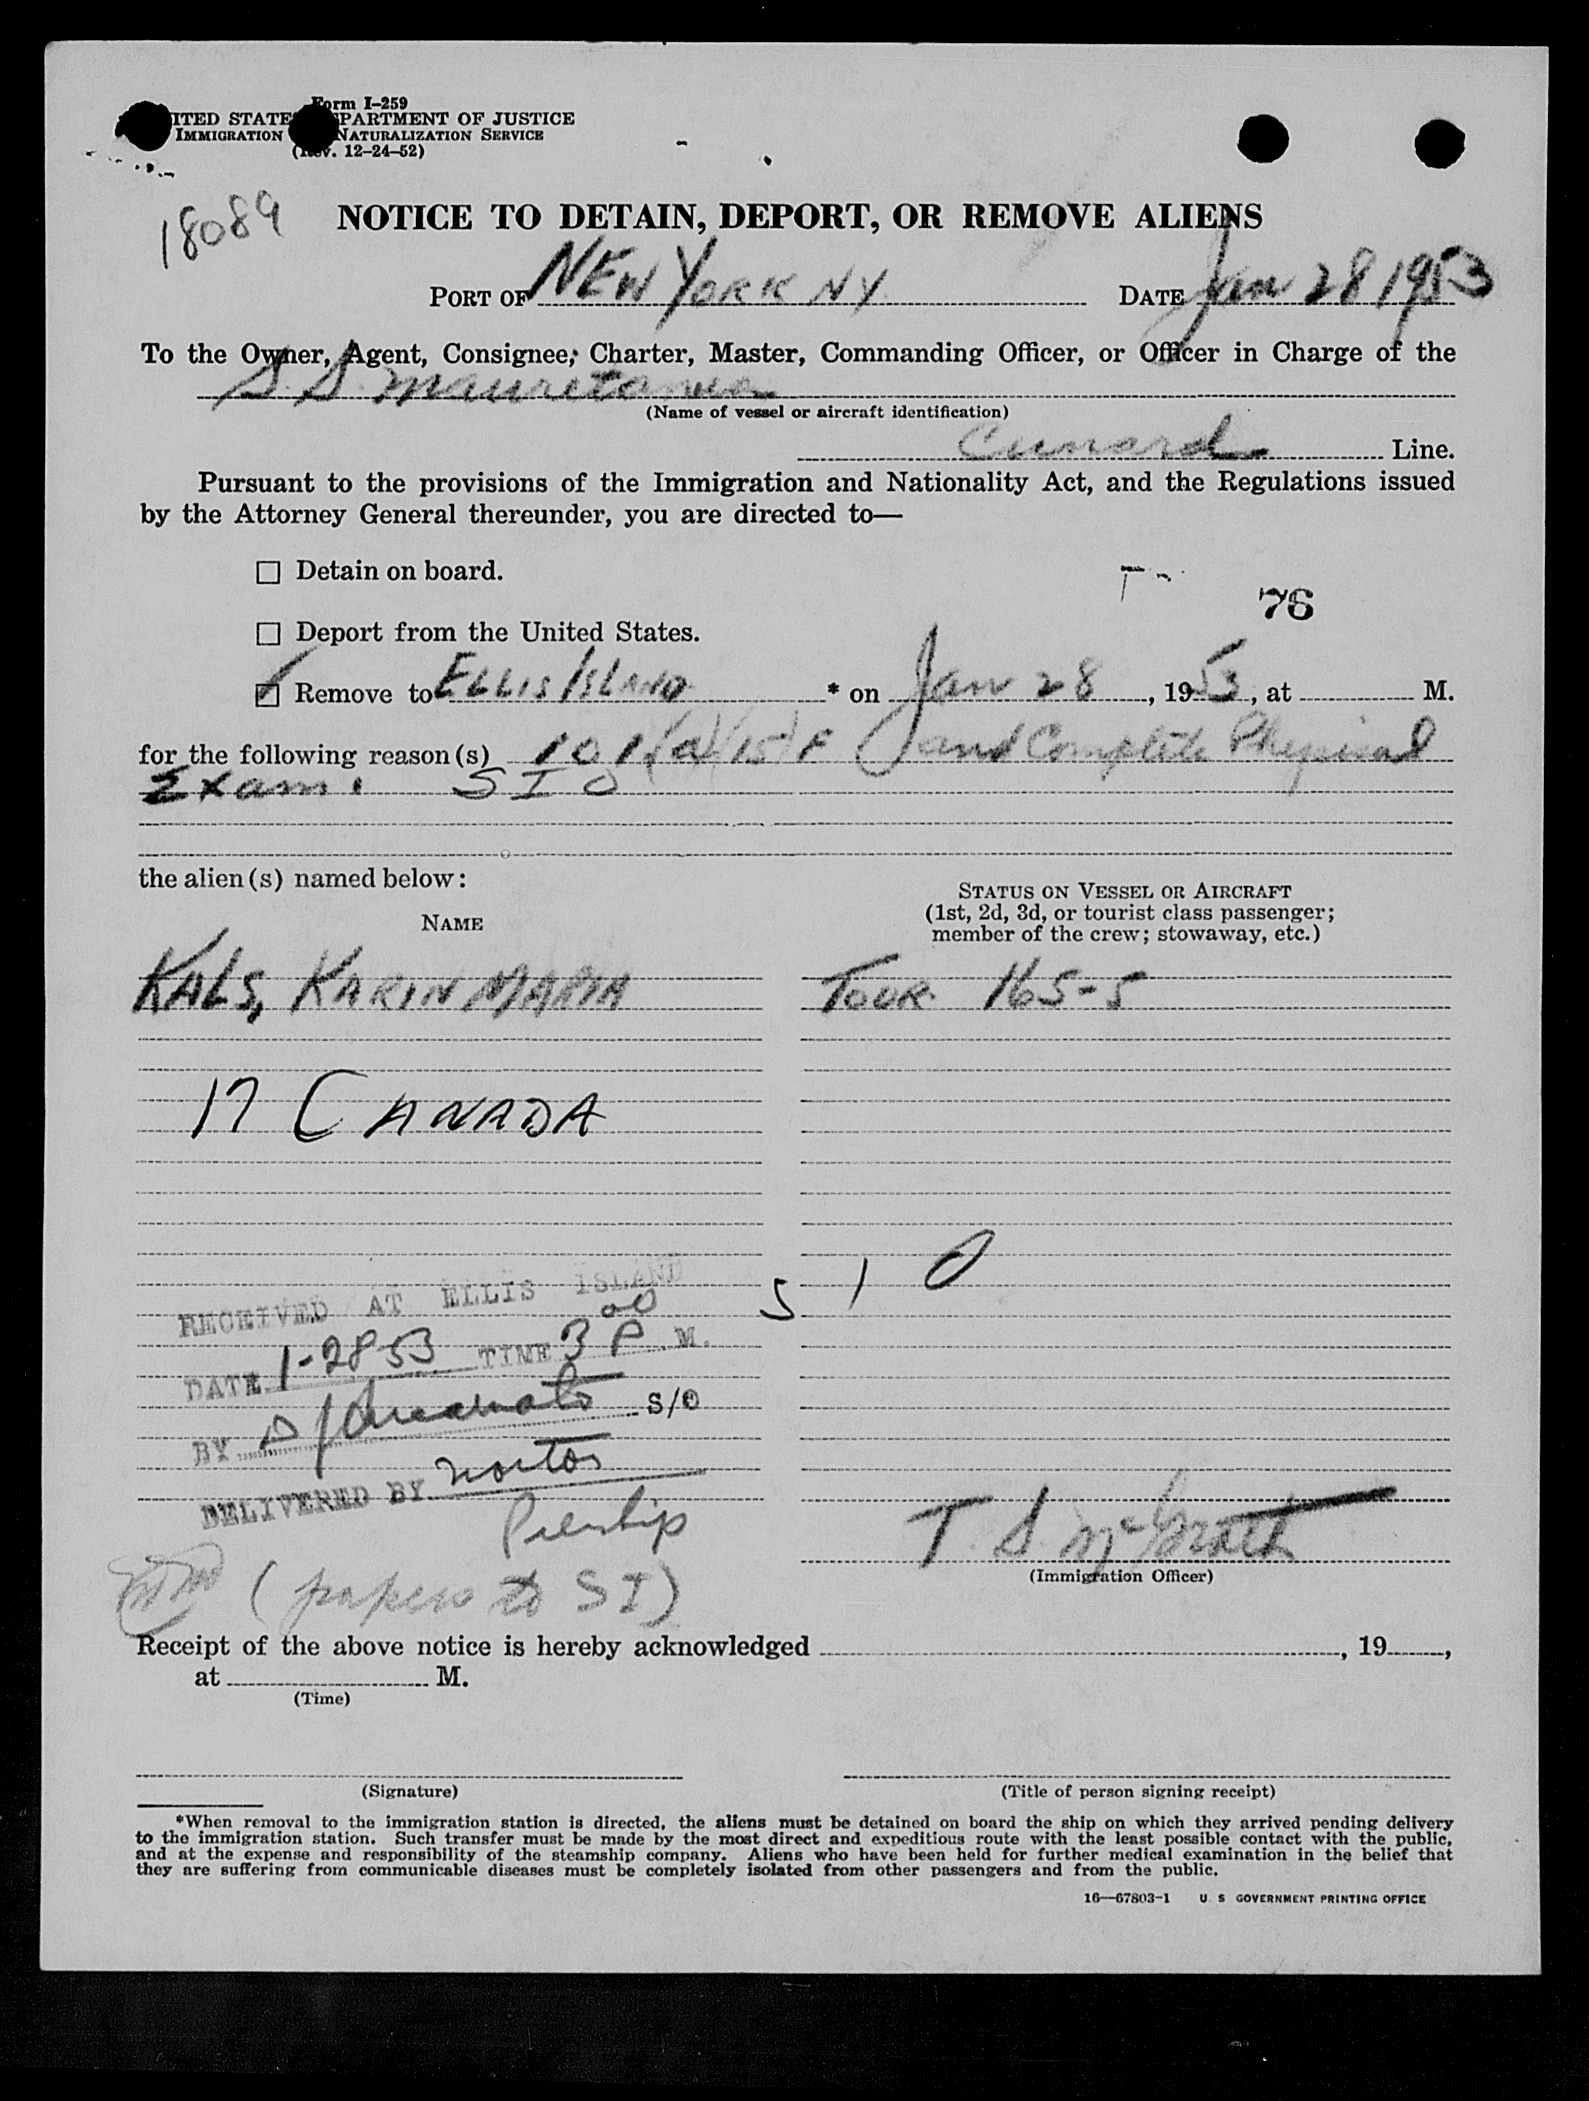 Form I-259
UNITED STATES DEPARTMENT OF JUSTICE
IMMIGRATION NATURALIZATION SERVICE
(Rev. 12-24-52)
18089
NOTICE TO DETAIN, DEPORT, OR REMOVE ALIENS
PORT OF NEW YORK NY DATE Jan 28 1953
To the Owner, Agent, Consignee, Charter, Master, Commanding Officer, or Officer in Charge of the
S.S. Mauretania
(Name of vessel or aircraft identification)
Cunard Line.
Pursuant to the provisions of the Immigration and Nationality Act, and the Regulations issued
by the Attorney General thereunder, you are directed to—
☐ Detain on board.
76
☐ Deport from the United States.
☑ Remove to ELLIS ISLAND * on Jan 28, 1953, at M.
for the following reason(s) 101(a)(15) F and Complete Physical
Exam. S I O
the alien(s) named below:
NAME
STATUS ON VESSEL OR AIRCRAFT
(1st, 2d, 3d, or tourist class passenger;
member of the crew; stowaway, etc.)
KALS, KARIN MARIA TOUR. 165-5
17 CANADA
S I O
RECEIVED AT ELLIS ISLAND
DATE 1-28 53 TIME 3 00 P M.
BY S/O
DELIVERED BY Norton
T. S. McGrath
(Immigration Officer)
(papers to S I)
Receipt of the above notice is hereby acknowledged , 19 ,
at M.
(Time)
(Signature) (Title of person signing receipt)
*When removal to the immigration station is directed, the aliens must be detained on board the ship on which they arrived pending delivery
to the immigration station. Such transfer must be made by the most direct and expeditious route with the least possible contact with the public,
and at the expense and responsibility of the steamship company. Aliens who have been held for further medical examination in the belief that
they are suffering from communicable diseases must be completely isolated from other passengers and from the public.
16—67803-1 U S GOVERNMENT PRINTING OFFICE